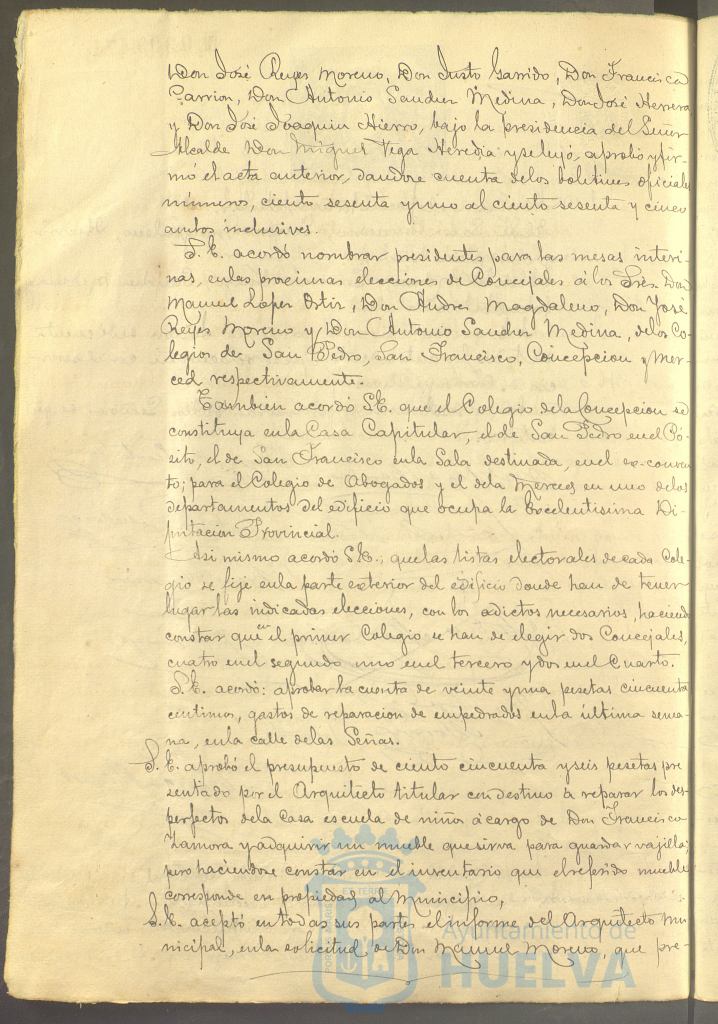 Don José Reyes Moreno, Don Justo Garrido, Don Francisco
Carrion, Don Antonio Sanchez Medina, Don José Herrera
y Don José Joaquin Hierro, bajo la presidencia del Señor
Alcalde Don Miguel Vega Heredia y se leyó, aprobó y fir-
mó el acta anterior, dandose cuenta de los boletines oficiales
números, ciento sesenta y uno al ciento sesenta y cinco
ambos inclusives.
S. E. acordó nombrar presidentes para las mesas interi-
nas, en las proximas elecciones de Concejales á los Sres. Don
Manuel Lopez Ortiz, Don Andres Magdaleno, Don José
Reyes Moreno y Don Antonio Sanchez Medina, de los Co-
legios de San Pedro, San Francisco, Concepcion y Mer-
ced respectivamente.
Tambien acordó S.E. que el Colegio de la Concepcion se
constituya en la Casa Capitular, el de San Pedro en el Pó-
sito, el de San Francisco en la Sala destinada, en el ex-conven-
to; para el Colegio de Abogados y el de la Merced en uno de los
departamentos del edificio que ocupa la Excelentisima Di-
putacion Provincial.
Asi mismo acordó S.E.; que las listas electorales de cada Cole-
gio se fije en la parte exterior del edificio donde han de tener
lugar las indicadas elecciones, con los adictos necesarios, haciendo
constar que en el primer Colegio se han de elegir dos Concejales,
cuatro en el segundo uno en el tercero y dos en el Cuarto.
S. E. acordó: aprobar la cuenta de veinte y una pesetas cincuenta
centimos, gastos de reparacion de empedrados en la última sema-
na, en la calle de las Señas.
S. E. aprobó el presupuesto de ciento cincuenta y seis pesetas pre
sentado por el Arquitecto titular con destino á reparar los des-
perfectos de la Casa escuela de niños á cargo de Don Francisco
Zamora y adquirir un mueble que sirva para guardar vajilla;
pero haciendose constar en el inventario que el referido mueble
corresponde en propiedad al Municipio,
S. E. aceptó en todas sus partes el informe del Arquitecto Mu-
nicipal, en la solicitud de Don Manuel Moreno, que pre-
Ayuntamiento de
HUELVA